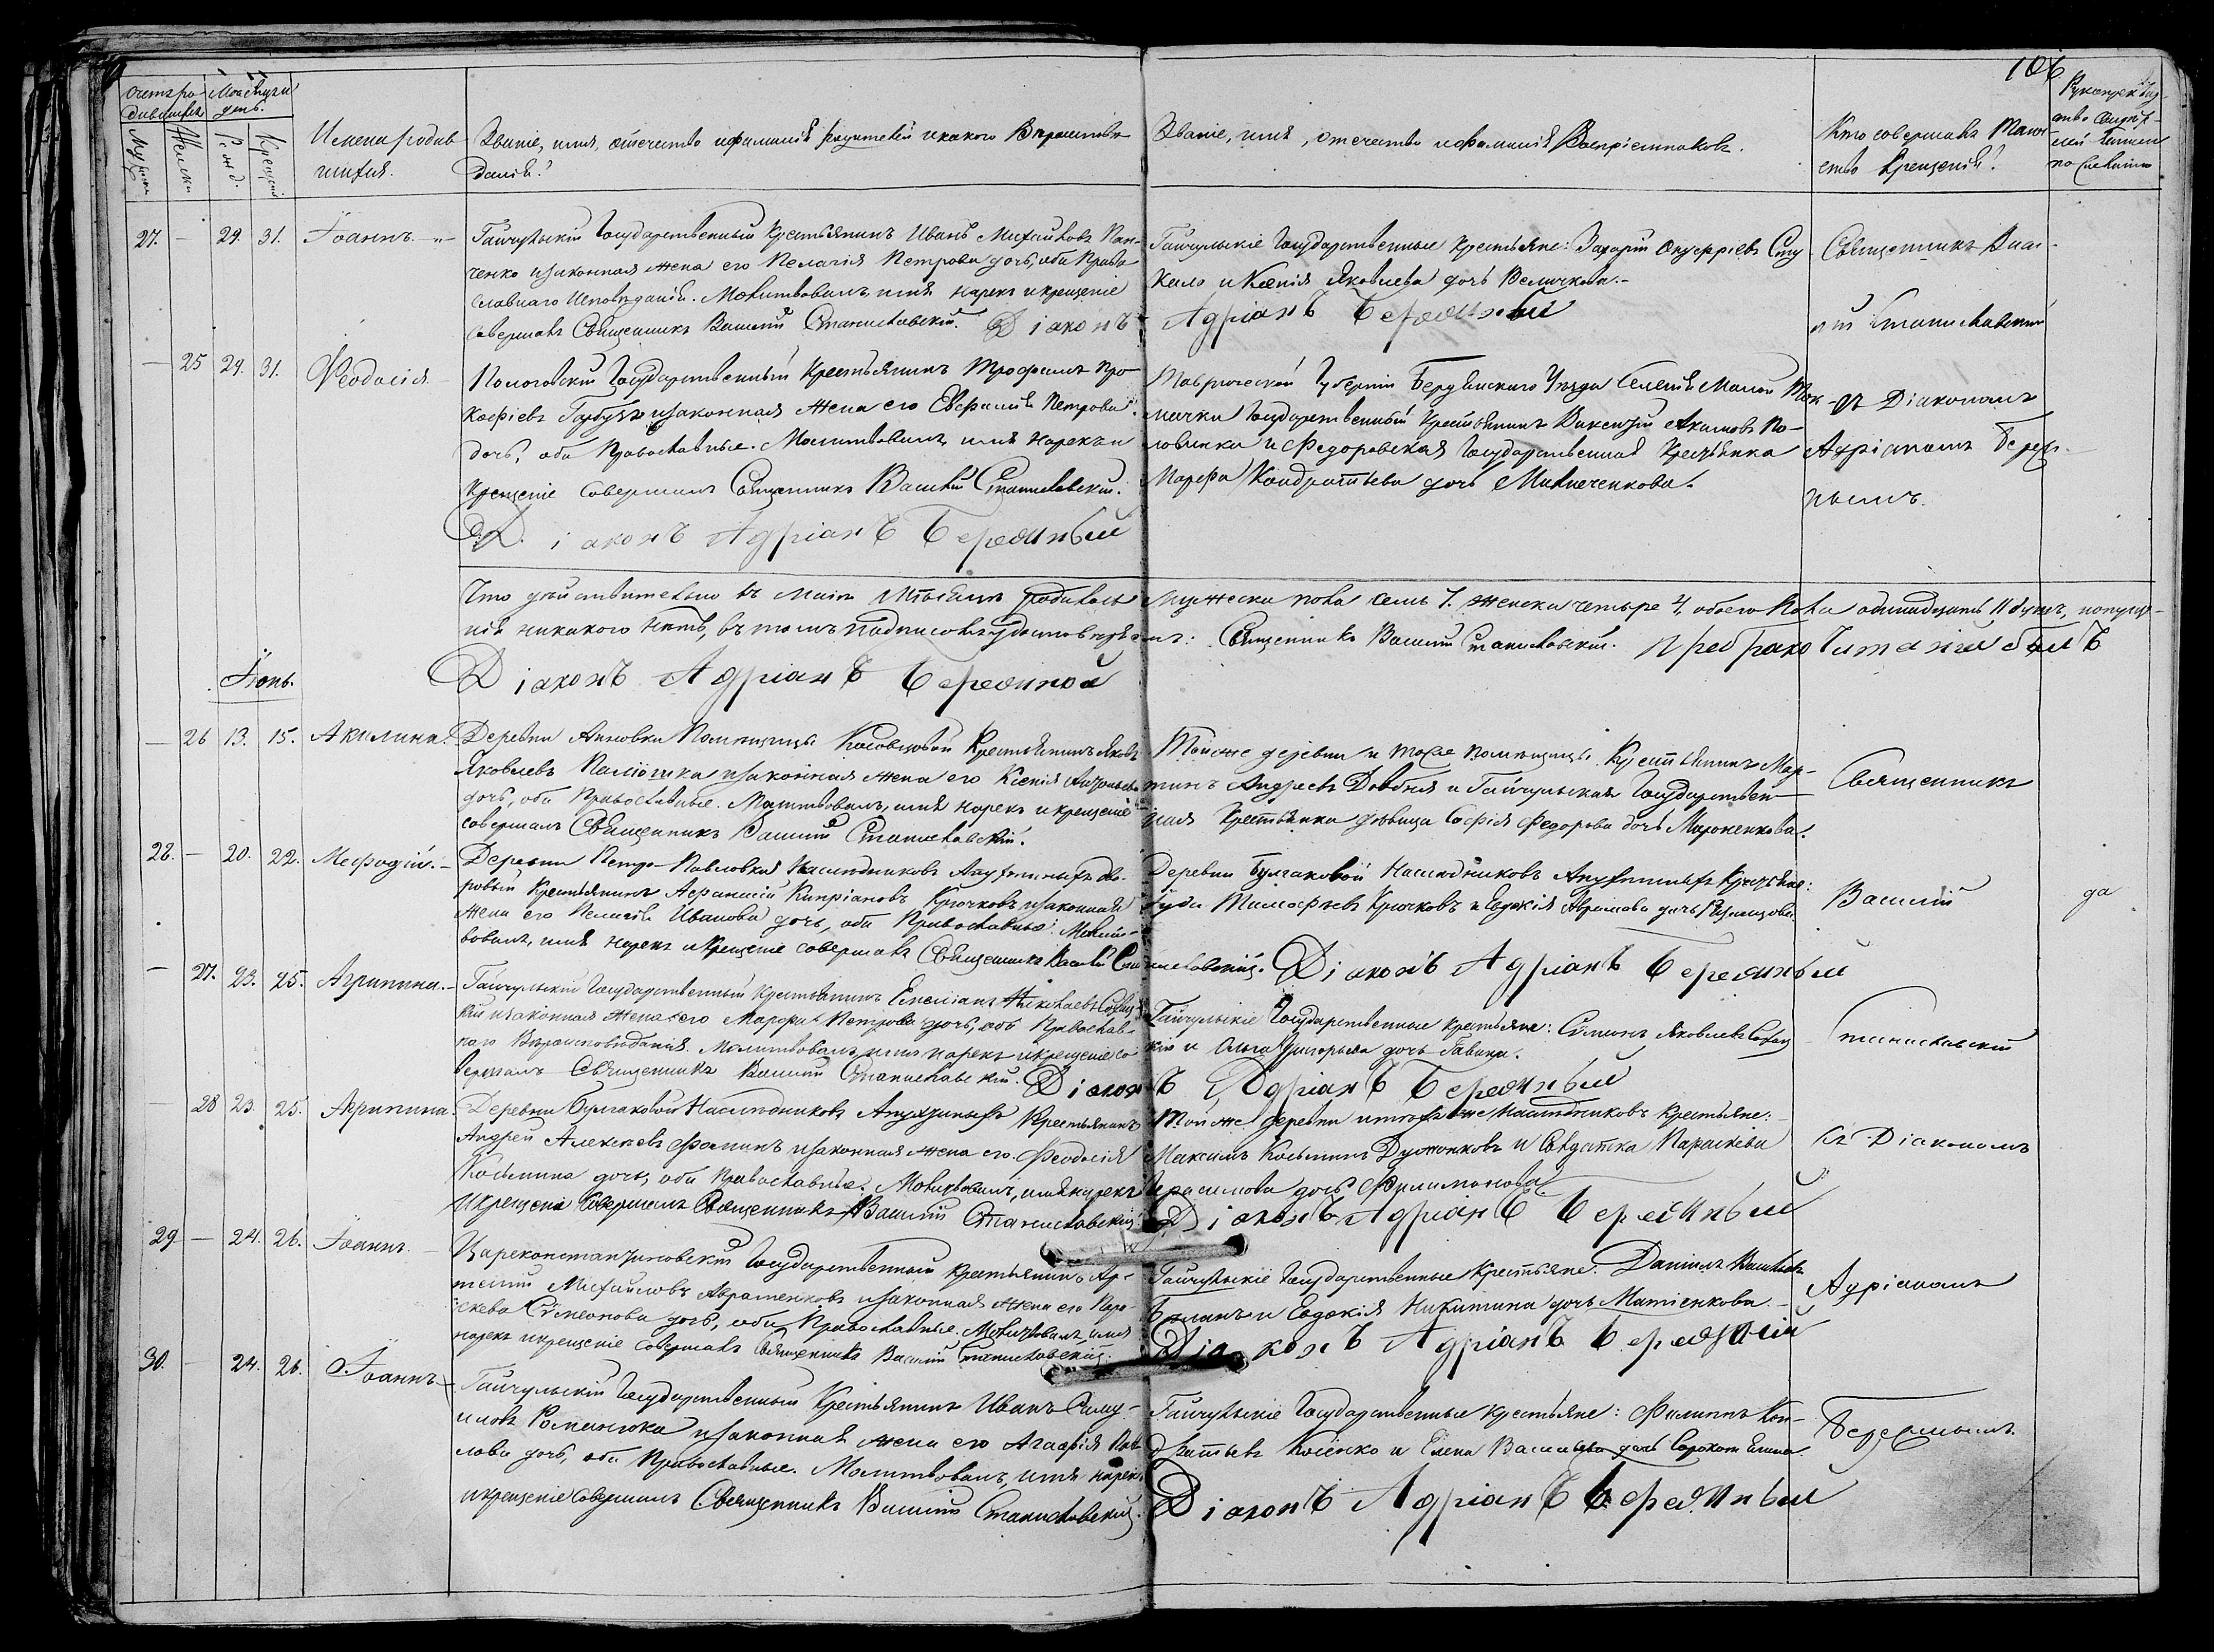 106
Счетъ ро
дившихся
Мѣсяцъ и
день.
Мужеска
Женска
Рожд.
Крещенія
Имена родив
шихся.
Званіе, имя, отечество и фамилія родителей и какого Вѣроисповѣ
данія?
Званіе, имя, отечество и фамилія Воспріемниковъ.
Кто совершалъ Таин
ство Крещенія?
Рукоприклад
ство свидѣте
лей записи
по желанію
27. — 29. 31. Іоаннъ.
Гайчульскій Государственный Крестьянинъ Иванъ Михайловъ Пан-
ченко и законная жена его Пелагія Петрова дочь, оба Право
славнаго Исповѣданія. Молитвовалъ, имя нарекъ и крещеніе
совершалъ Священникъ Василій Станиславскій. Діаконъ
Гайчульскіе Государственные Крестьяне: Захарій Онуфріевъ Сту
кало и Ксенія Яковлева дочь Величкова.
Адріанъ Бережный
Священникъ Васи-
лій Станиславскій
— 25 29. 31. Ѳеодосія
Пологовскій Государственный Крестьянинъ Трофимъ Про
кофіевъ и законная жена его Евфимія Петрова
дочь, оба Православные. Молитвовалъ, имя нарекъ и
крещеніе совершалъ Священникъ Василій Станиславскій.
Діаконъ Адріанъ Бережный
Таврической Губерніи Бердянскаго Уѣзда Селенія Малой Ток-
мачки Государственный Крестьянинъ Викентій Акимовъ По-
ловинка и Федоровская Государственная Крестьянка
Марфа Кондратьева дочь Михнеченкова.
съ Діакономъ
Адріаномъ Береж-
нымъ.
Что дѣйствительно въ Маіѣ Мѣсяцѣ родилось мужеска пола семь 7. женска четыре 4. обоего пола одинадцать 11 душъ, пропуще-
нія никакого нѣтъ, въ томъ подписомъ удостовѣряемъ: Священникъ Василій Станиславскій.
Діаконъ Адріанъ Бережной
Іюнь.
— 26 13. 15. Акилина.
Деревни Анновки Помѣщицы Косовцовой Крестьянинъ Яковъ
Яковлевъ и законная жена его Ксенія
дочь, оба Православные. Молитвовалъ, имя нарекъ и крещеніе
совершалъ Священникъ Василій Станиславскій.
Той же деревни и той же помѣщицы Крестьянинъ Мар-
тинъ Андреевъ Довбня и Гайчульская Государствен
ная Крестьянка дѣвица Софія Федорова дочь Мироненкова.
Священникъ
28. — 20. 22. Мефодій.
Деревни Петро-Павловки Наслѣдниковъ дво-
ровый Крестьянинъ Афанасій Кипріановъ Крючковъ и законная
жена его Пелагія Иванова дочь, оба Православные. Молит-
вовалъ, имя нарекъ и крещеніе совершалъ Священникъ Василій Ста
Деревни Булгаковой Наслѣдниковъ Крестьяне:
Іуда Тимофѣевъ Крючковъ и Евдокія Абрамова дочь
ниславскій. Діаконъ Адріанъ Бережный
Василій
да
— 27. 23. 25. Агрипина.
Гайчульскій Государственный Крестьянинъ Емеліанъ Николаевъ
кій и законная жена его Марфа Петрова дочь, оба Православ-
наго Вѣроисповѣданія. Молитвовалъ, имя нарекъ и крещеніе со
вершалъ Священникъ Василій Станиславскій. Діакон
Гайчульскіе Государственные Крестьяне: Симонъ Яковлевъ
кій и Ольга Григорьева дочь
ъ Адріанъ Бережный
Станиславскій
— 28 23. 25. Агрипина.
Деревни Булгаковой Наслѣдниковъ Крестьянинъ
Андрей Алексѣевъ Фоминъ и законная жена его Феодосія
Козьмина дочь, оба Православные. Молитвовалъ, имя нарекъ
и крещеніе совершалъ Священникъ Василій Станиславскій
Той же деревни и тѣхъ же Наслѣдниковъ Крестьяне:
Максимъ Козьминъ и Солдатка Параскева
Герасимова дочь Филимонова.
Діаконъ Адріанъ Бережный
съ Діакономъ
29. — 24. 26. Іоаннъ.
Цареконстантиновскій Государственный Крестьянинъ Ар-
темій Михайловъ Авраменковъ и законная жена его Пара
скева Симеонова дочь, оба Православные. Молитвовалъ, имя
нарекъ и крещеніе совершалъ Священникъ Василій Станиславскій.
Гайчульскіе Государственные Крестьяне: Даніилъ Васильевъ
и Евдокія Никитина дочь Матіенкова.
Діаконъ Адріанъ Бережный
Адріаномъ
30. — 24. 26. Іоаннъ
Гайчульскій Государственный Крестьянинъ Иванъ Саму-
иловъ Романюка и законная жена его Агафія Пав
лова дочь, оба Православные. Молитвовалъ, имя нарекъ
и крещеніе совершалъ Священникъ Василій Станиславскій.
Гайчульскіе Государственные Крестьяне: Филиппъ Кон-
дратьевъ и Елена Васильева дочь
Діаконъ Адріанъ Бережный
Бережнымъ.